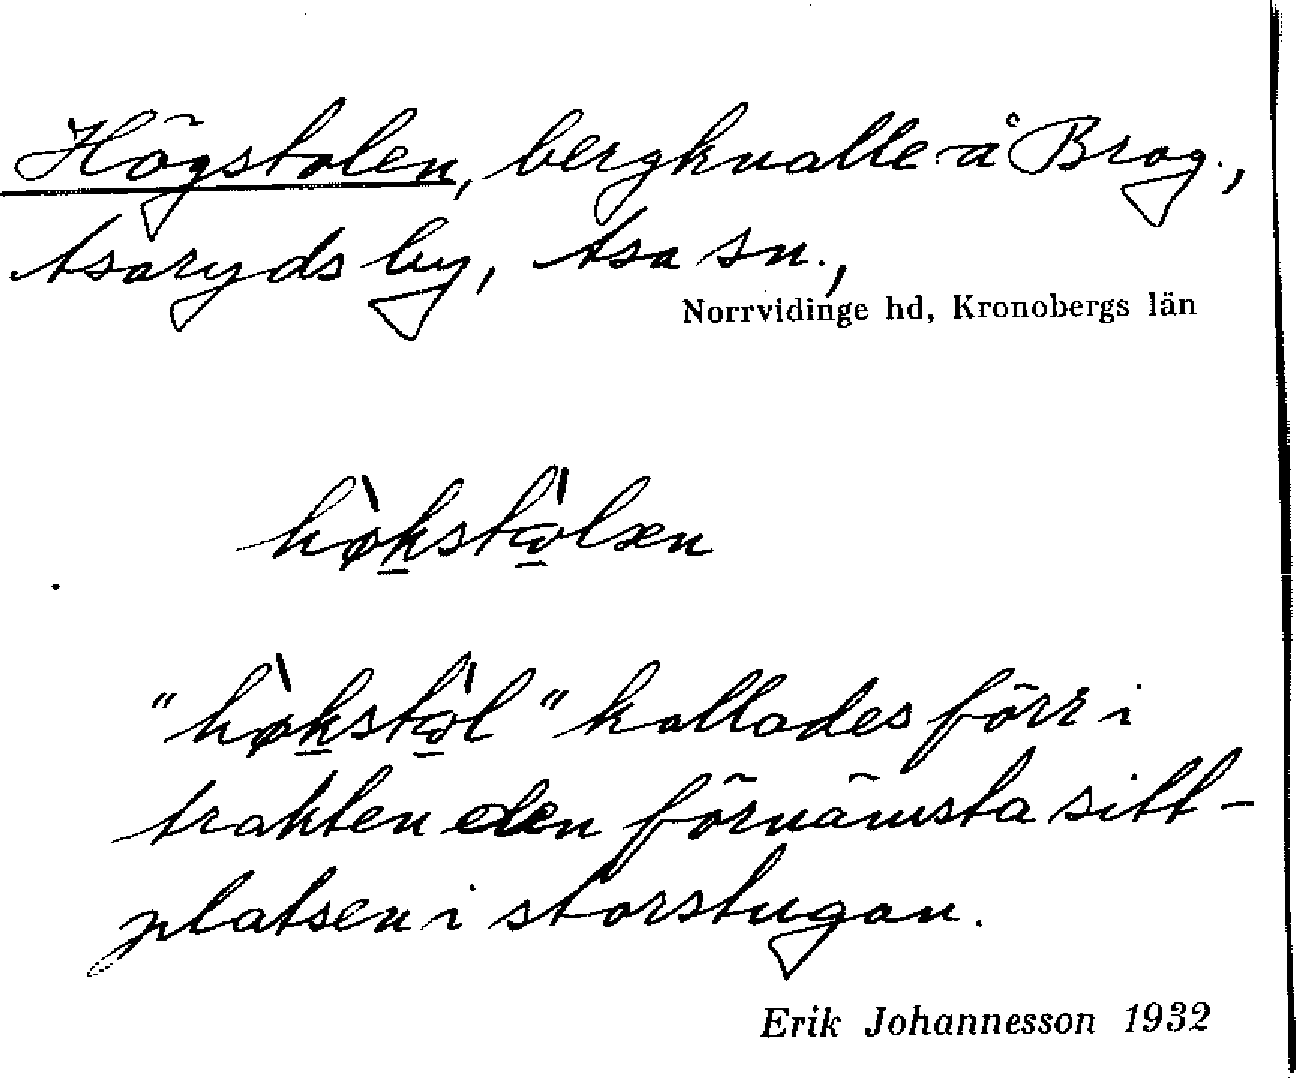 Högstolen, bergknalle å Brog.,
Asaryds by, Asa sn.,
Norrvidinge hd, Kronobergs län
hø̀kstὼlæn
"hø̀kstὼl" kallades förr i
trakten den förnämsta sitt-
platsen i storstugan.
Erik Johannesson 1932